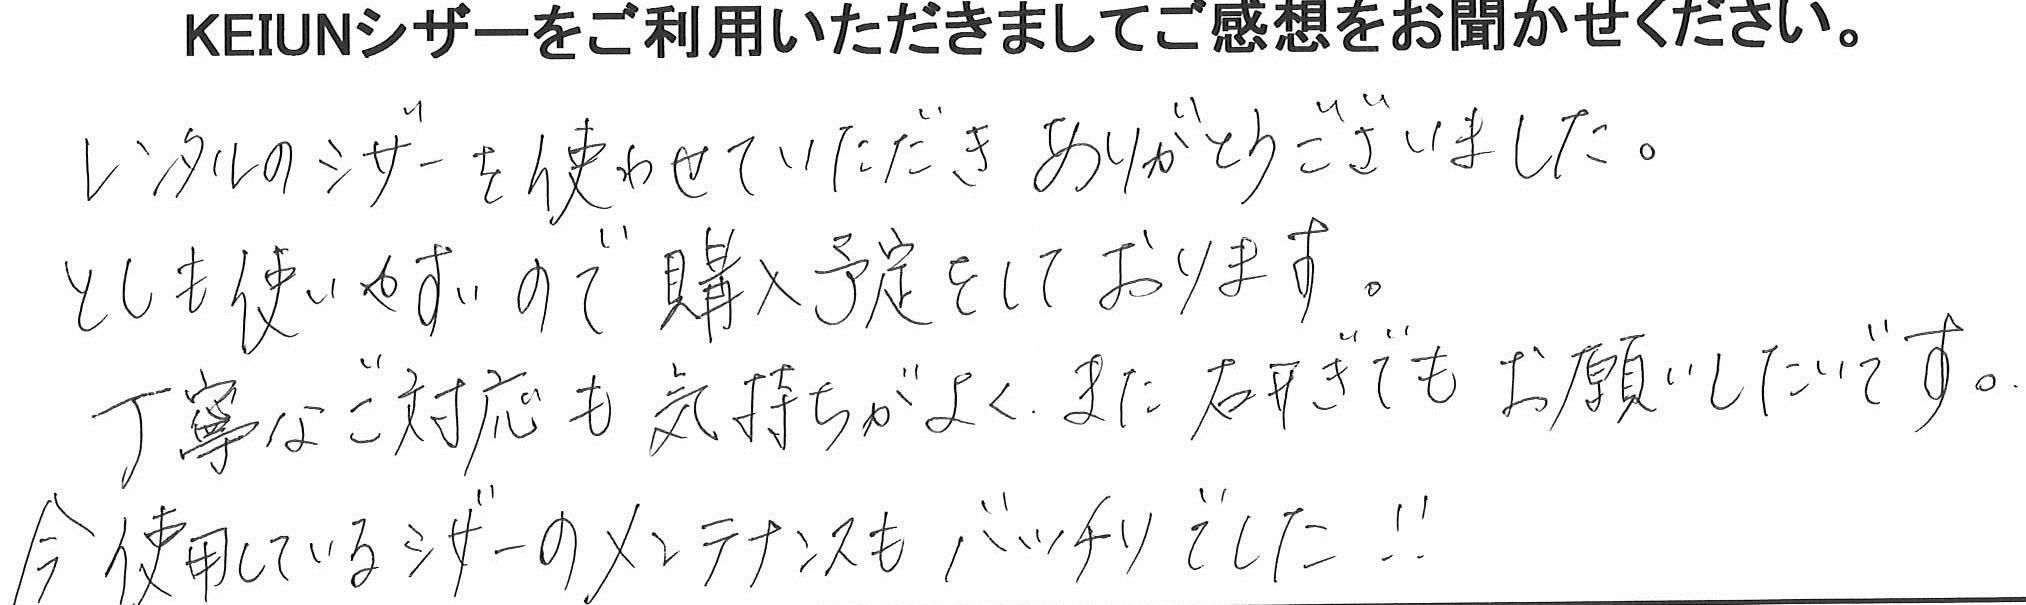 KEIUNシザーをご利用いただきましてご感想をお聞かせください。
レンタルのシザーを使わせていただき ありがとうございました。
とても使いやすいので購入予定をしております。
丁寧なご対応も気持ちがよく、また研ぎでもお願いしたいです。
今使用しているシザーのメンテナンスもバッチリでした!!